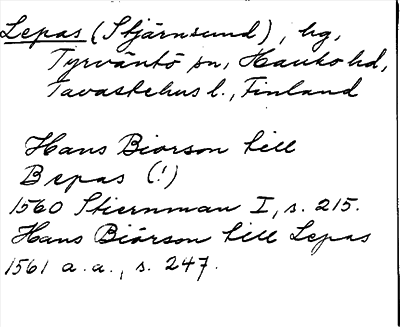 Lepas (Stjärnsund), hg,
Tyrväntö sn, Hauho hd,
Tavastehus l., Finland
Hans Biorson till
Bepas (!)
1560 Stiernman I, s. 215.
Hans Biörson till Lepas
1561 a.a., s. 247.